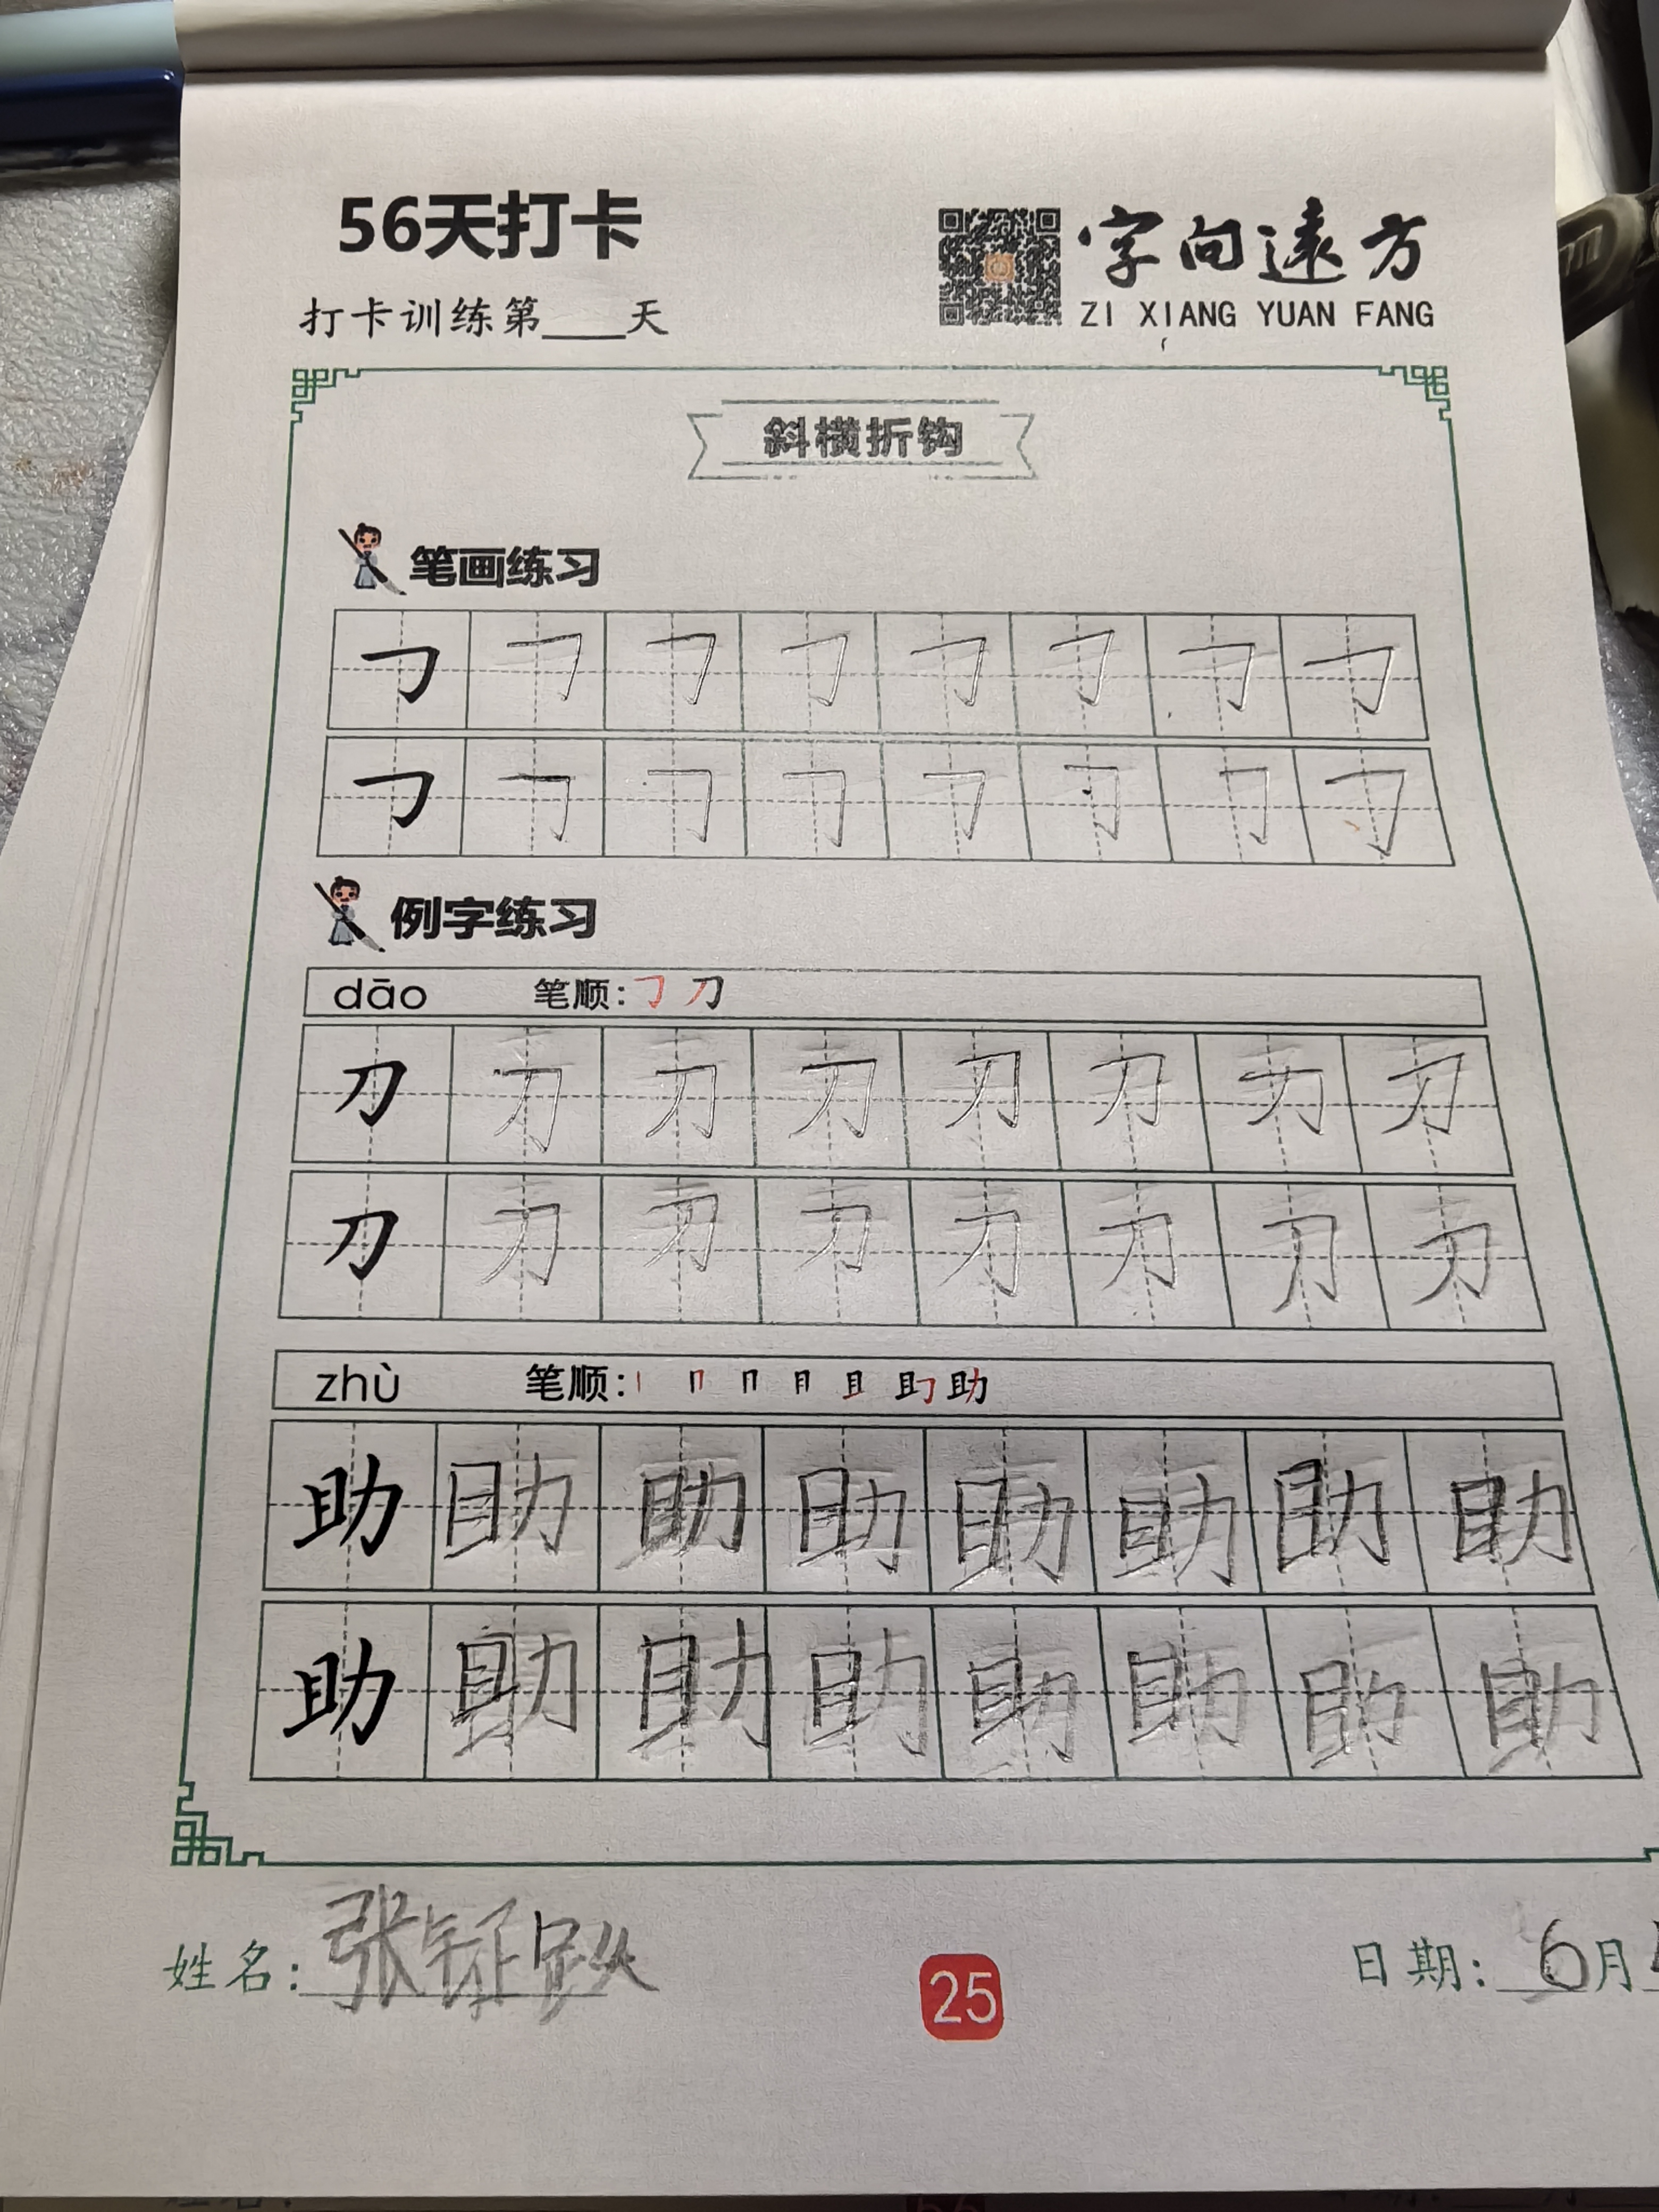 56天打卡
字向遠方
打卡训练第____天
ZI XIANG YUAN FANG
斜横折钩
笔画练习
㇆ ㇆ ㇆ ㇆ ㇆ ㇆ ㇆ ㇆
㇆ ㇆ ㇆ ㇆ ㇆ ㇆ ㇆ ㇆
例字练习
dāo 笔顺: ㇆ 刀
刀 刀 刀 刀 刀 刀 刀 刀
刀 刀 刀 刀 刀 刀 刀 刀
zhù 笔顺: 丨 冂 冂 月 且 助
助 助 助 助 助 助 助 助
助 助 助 助 助 助 助 助
姓名: 张
25
日期: 6月